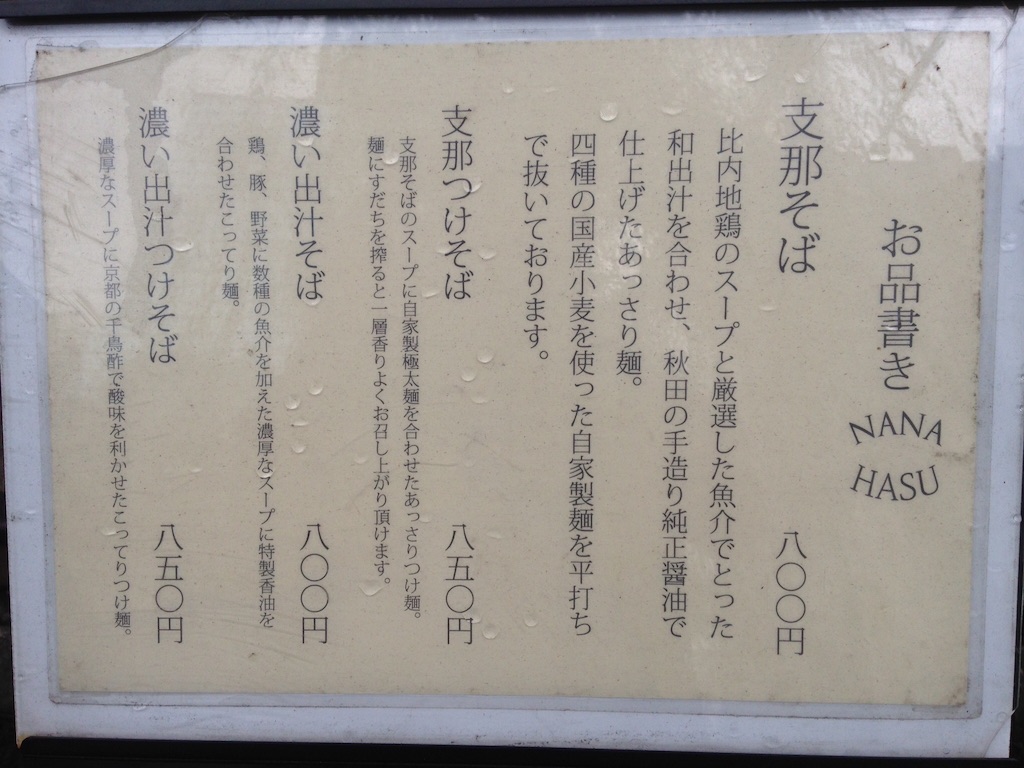 お品書き
NANA
HASU
支那そば
八〇〇円
比内地鶏のスープと厳選した魚介でとった
和出汁を合わせ、秋田の手造り純正醤油で
仕上げたあっさり麺。
四種の国産小麦を使った自家製麺を平打ち
で抜いております。
支那つけそば
八五〇円
支那そばのスープに自家製極太麺を合わせたあっさりつけ麺。
麺にすだちを搾ると一層香りよくお召し上がり頂けます。
濃い出汁そば
八〇〇円
鶏、豚、野菜に数種の魚介を加えた濃厚なスープに特製香油を
合わせたこってり麺。
濃い出汁つけそば
八五〇円
濃厚なスープに京都の千鳥酢で酸味を利かせたこってりつけ麺。